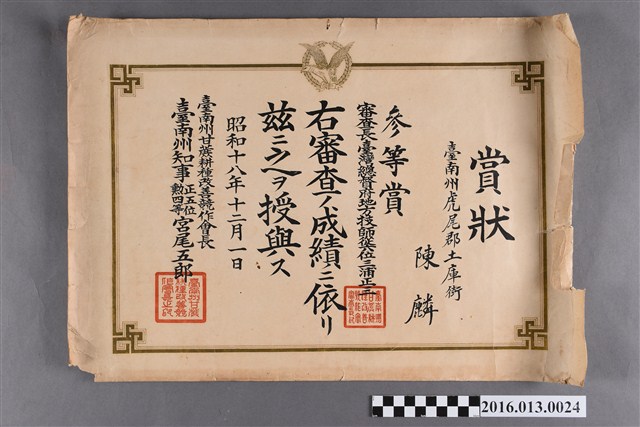 賞狀
臺南州虎尾郡土庫街
陳麟
參等賞
審査長臺灣總督府地方技師從七位三浦正二
右審査ノ成績ニ依リ
茲ニ之ヲ授與ス
昭和十八年十二月一日
臺南州甘蔗耕種改善競作會長
臺南州知事正五位勲四等宮尾五郎
2016.013.0024